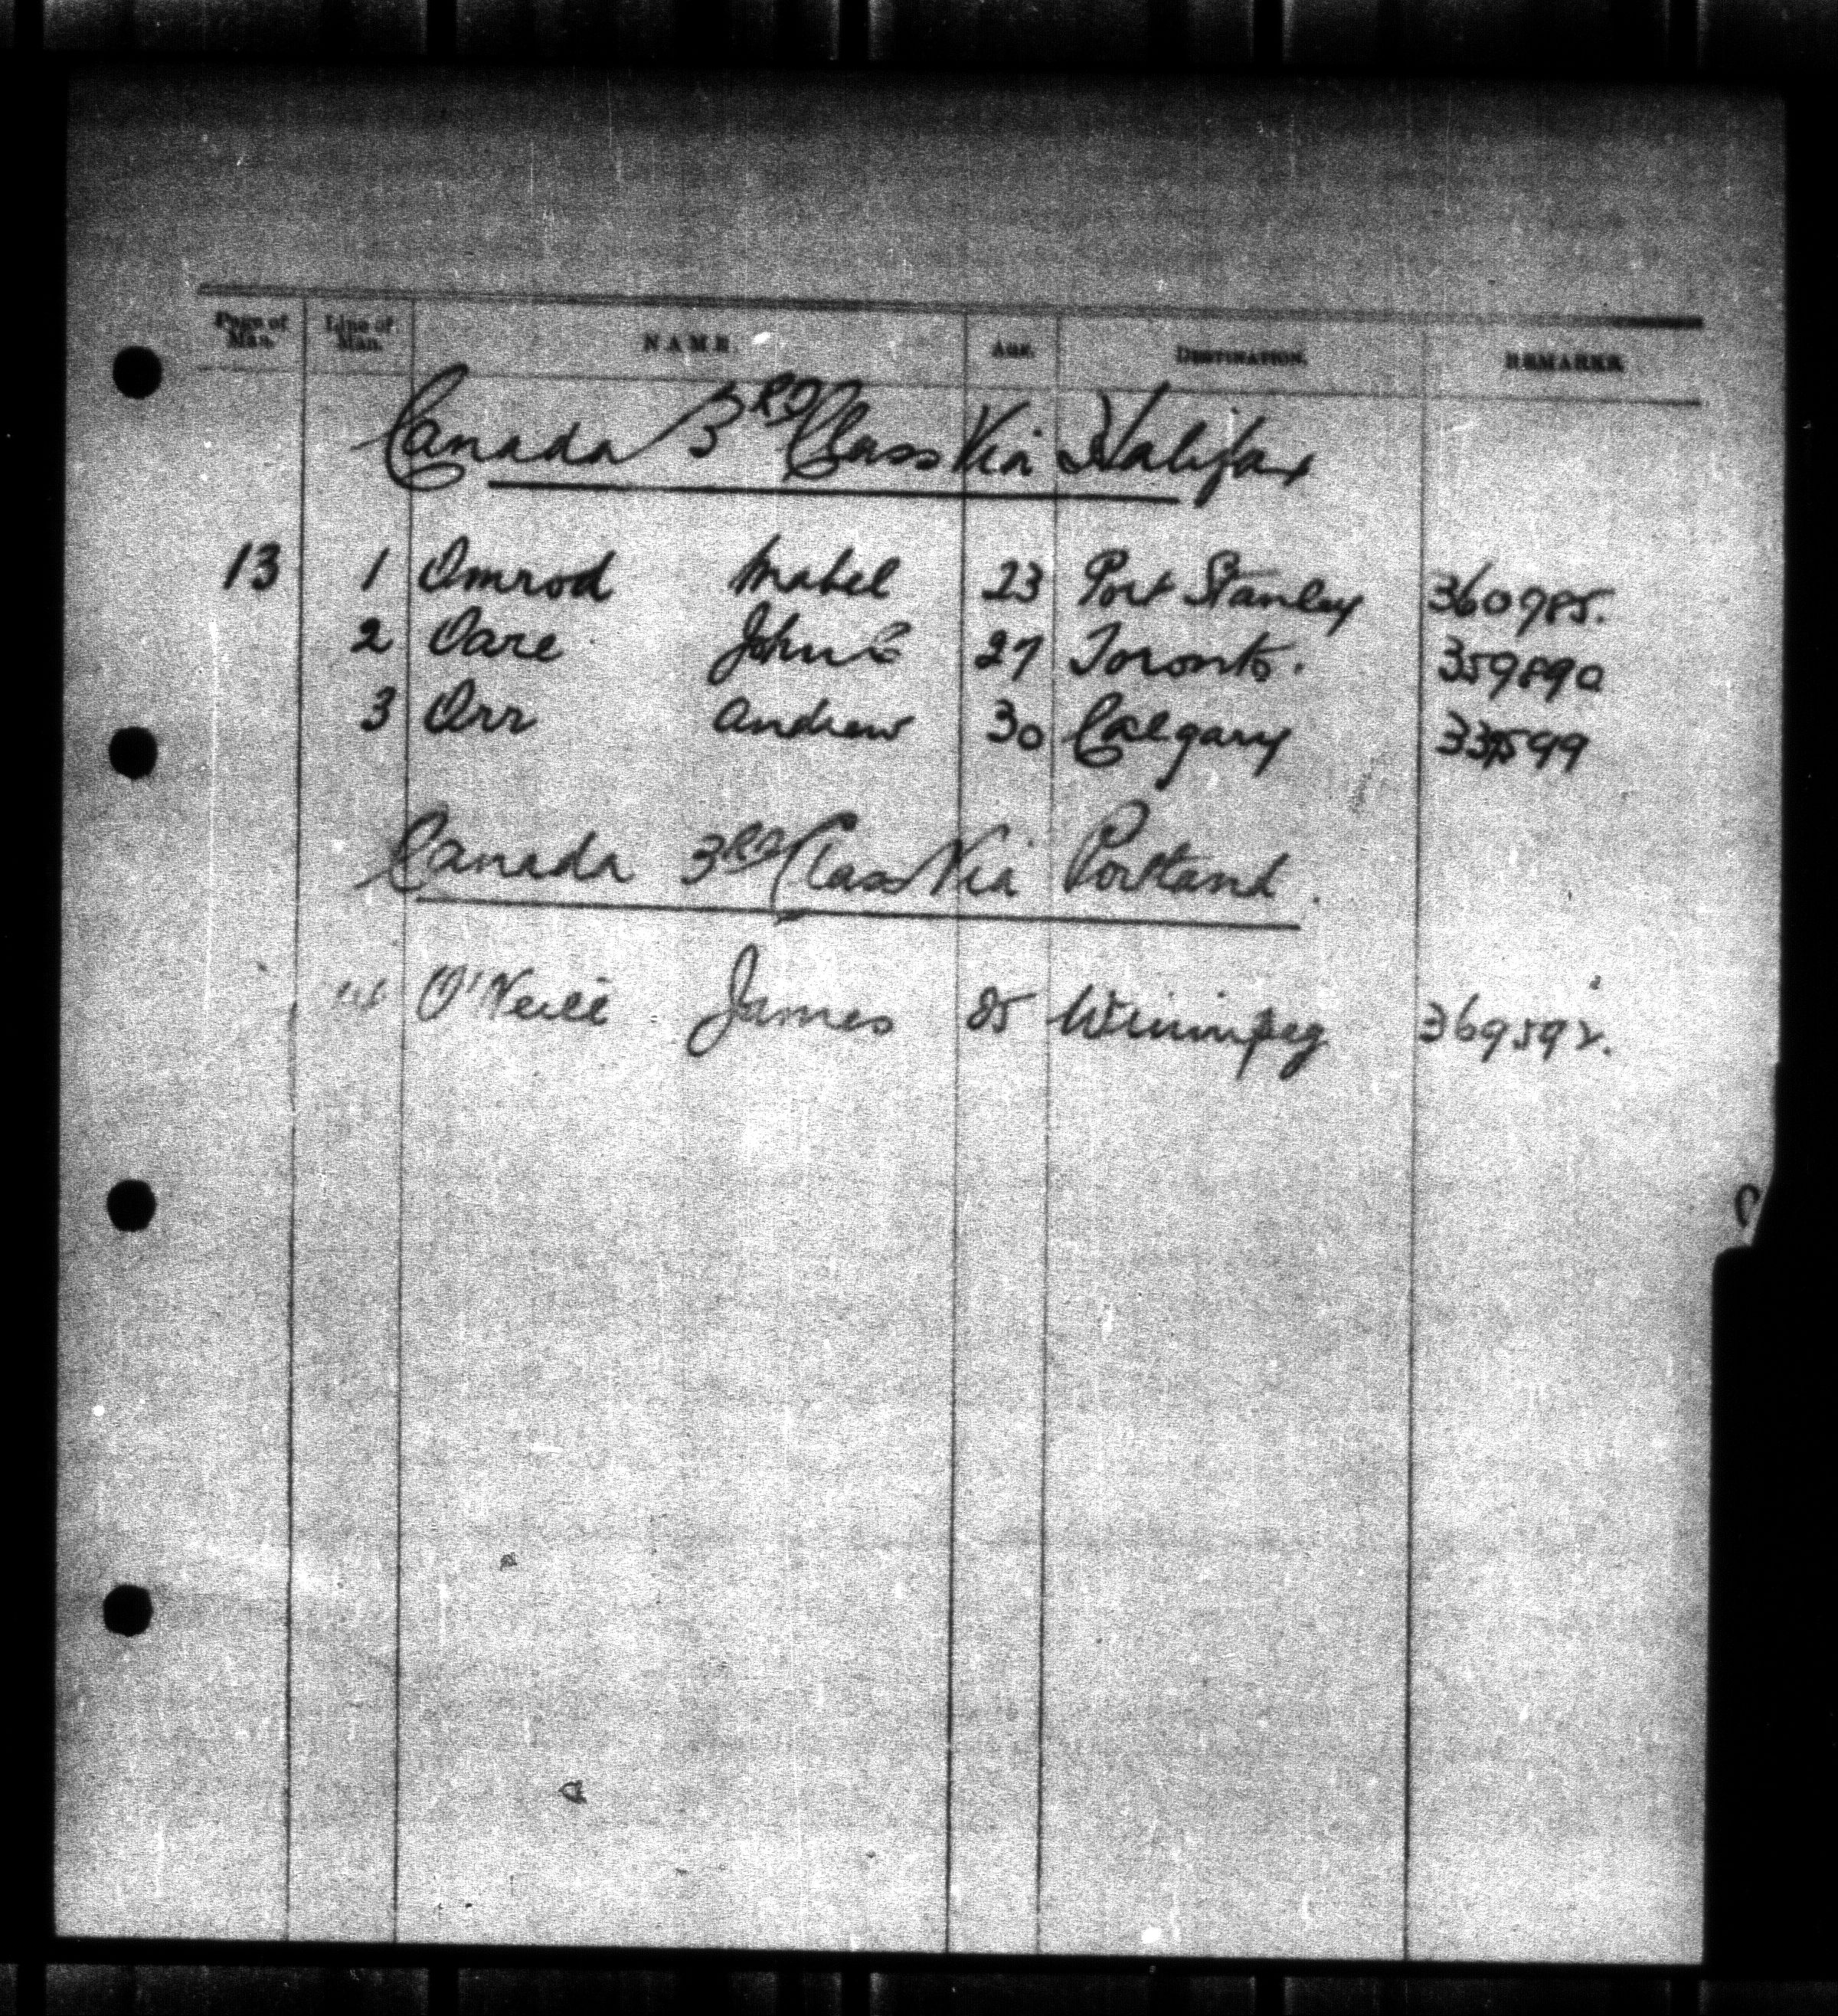 Page of Man. Line of Man. NAME. AGE. DESTINATION. REMARKS
Canada 3RD Class Via Halifax
13 1 Omrod Mabel 23 Port Stanley 360985.
2 Oare John C 27 Toronto. 359890
3 Orr Andrew 30 Calgary
Canada 3RD Class Via Portland.
O'Neill James 25 Winnipeg 369592.